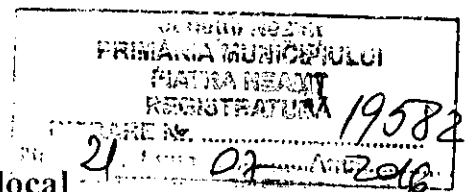 PRIMĂRIA MUNICIPIULUI
PIATRA NEAMȚ
REGISTRATURA
INTRARE Nr. 19582
21 Luna 07 Anul 2016
local